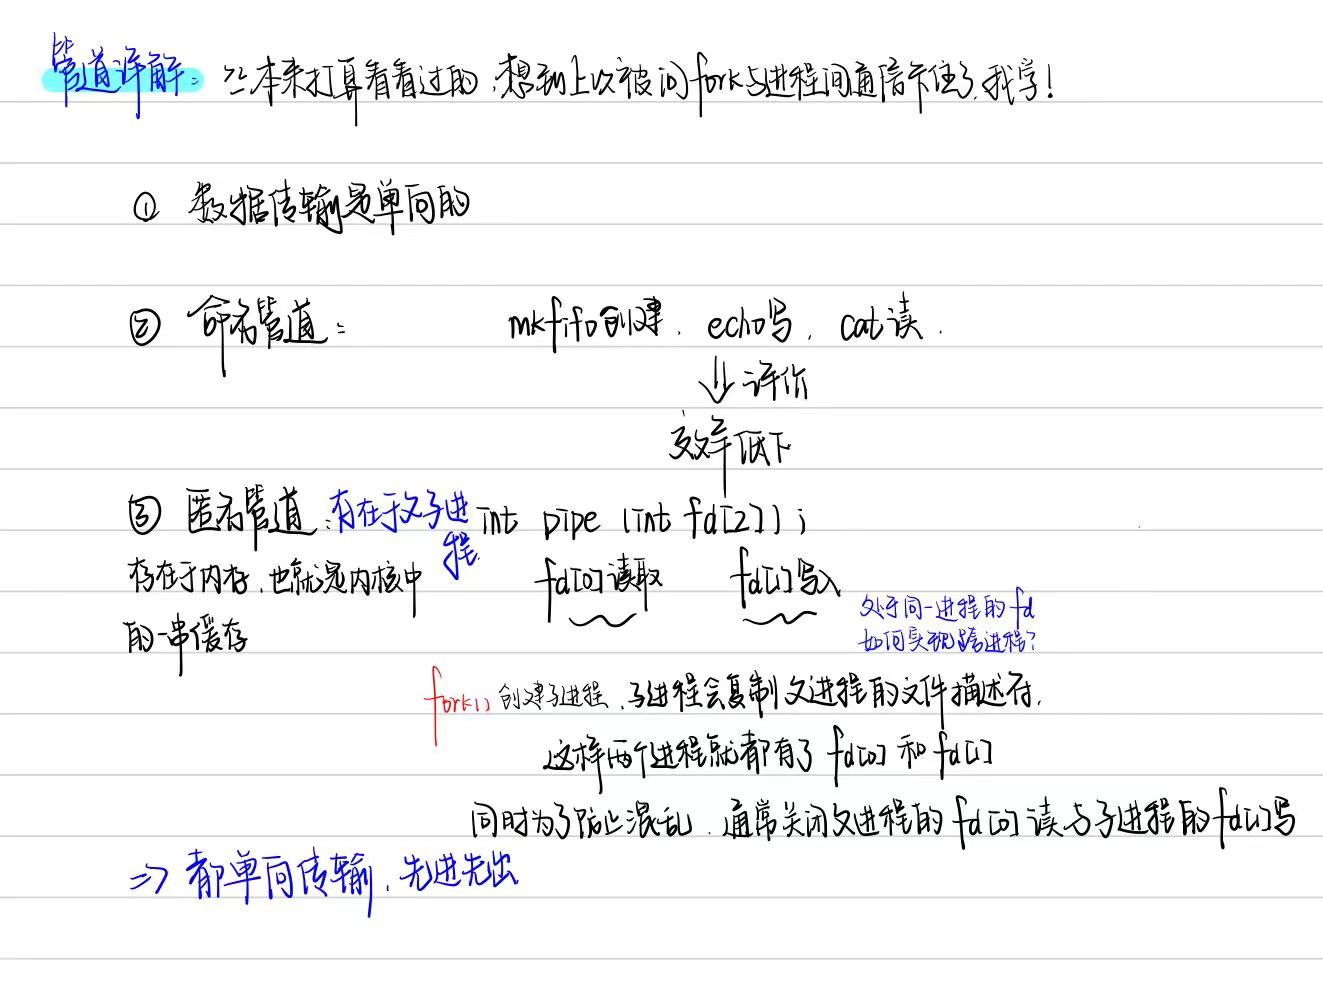 管道详解： 本来打算看看过的，想到上次被问fork与进程间通信卡住了，我学！
① 数据传输是单向的
② 命名管道： mkfifo创建，echo写，cat读.
⇓评价
效率低下
③ 匿名管道：存在于父子进程 int pipe (int fd[2]);
存在于内存，也就是内核中的一串缓存
fd[0]读取 fd[1]写入
处于同一进程的fd
如何实现跨进程？
fork() 创建子进程，子进程会复制父进程的文件描述符，
这样两个进程就都有了 fd[0] 和 fd[1]
同时为了防止混乱，通常关闭父进程的 fd[0] 读与子进程的 fd[1]写
=> 都单向传输，先进先出